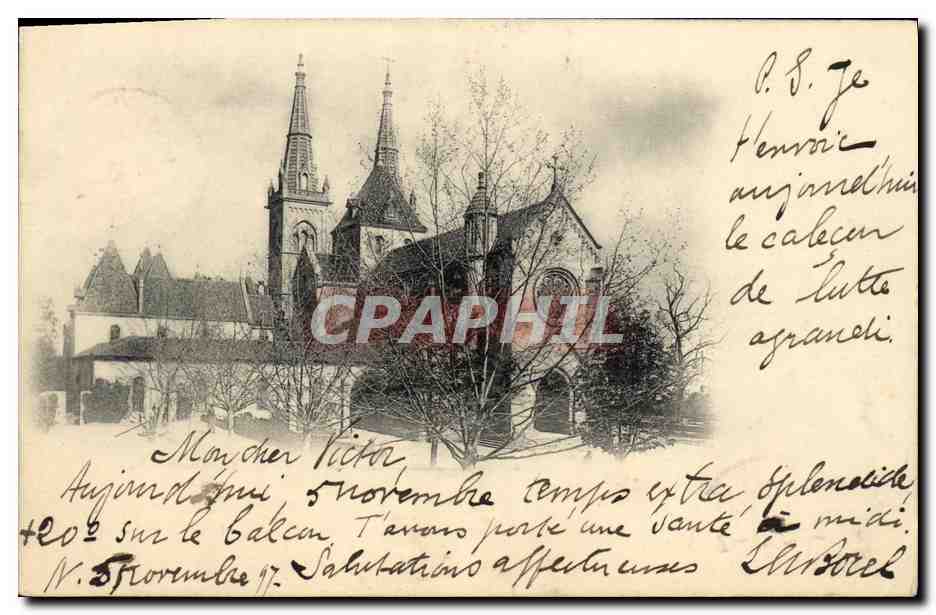 P. S. Je
t'envoie
aujourd'hui
le caleçon
de lutte
agrandi.
CPAPHIL
Mon cher Victor
Aujourd'hui 5 novembre temps extra splendide,
+20° sur le balcon, T'avons porté une santé à midi.
N. 5 Novembre 97. Salutations affectueuses Borel